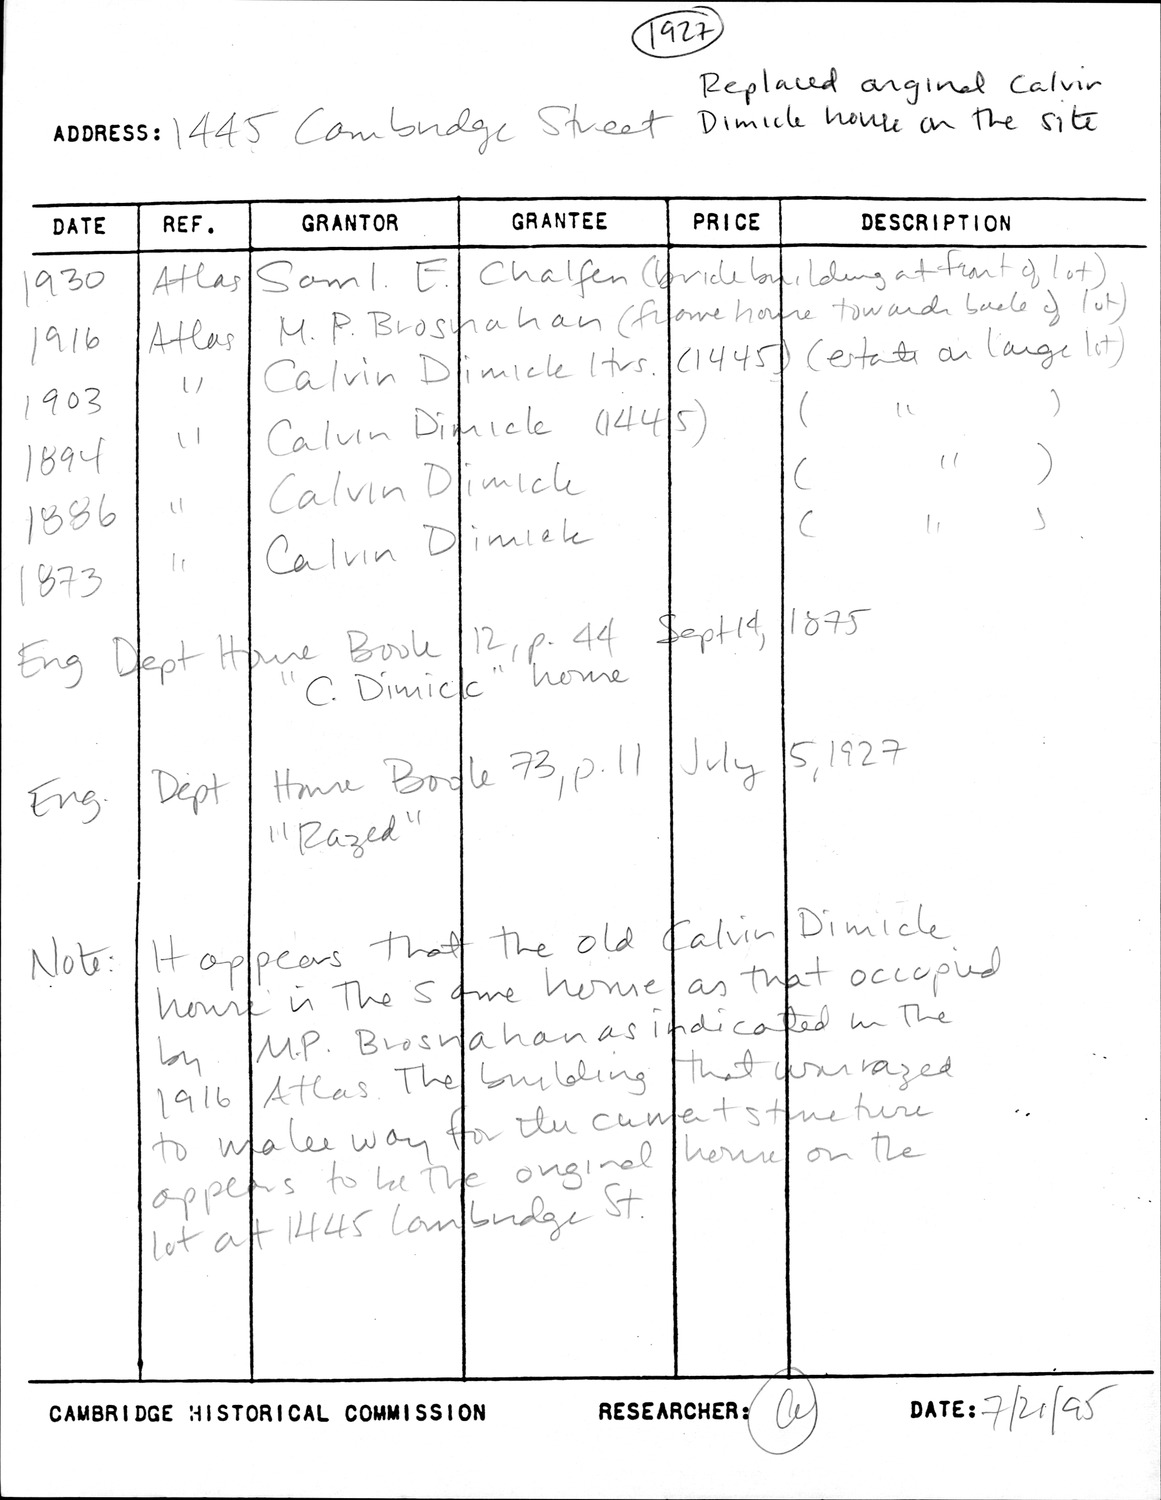 1927
Replaced original Calvin
ADDRESS: 1445 Cambridge Street Dimick house on the site
DATE REF. GRANTOR GRANTEE PRICE DESCRIPTION
1930 Atlas Saml. E. Chalfen (brick building at front of lot)
1916 Atlas M. P. Brosnahan (frame house towards back of lot)
1903 " Calvin Dimick Htrs. (1445) (estate on large lot)
1894 " Calvin Dimick (1445) ( " )
1886 " Calvin Dimick ( " )
1873 " Calvin Dimick ( " )
Eng Dept House Book 12, p. 44 Sept 14, 1875
"C. Dimick" house
Eng. Dept House Book 73, p. 11 July 5, 1927
"Razed"
Note: It appears that the old Calvin Dimick
house is the same house as that occupied
by M.P. Brosnahan as indicated in the
1916 Atlas. The building that was razed
to make way for the current structure
appears to be the original house on the
lot at 1445 Cambridge St.
CAMBRIDGE HISTORICAL COMMISSION RESEARCHER: DATE: 7/21/95